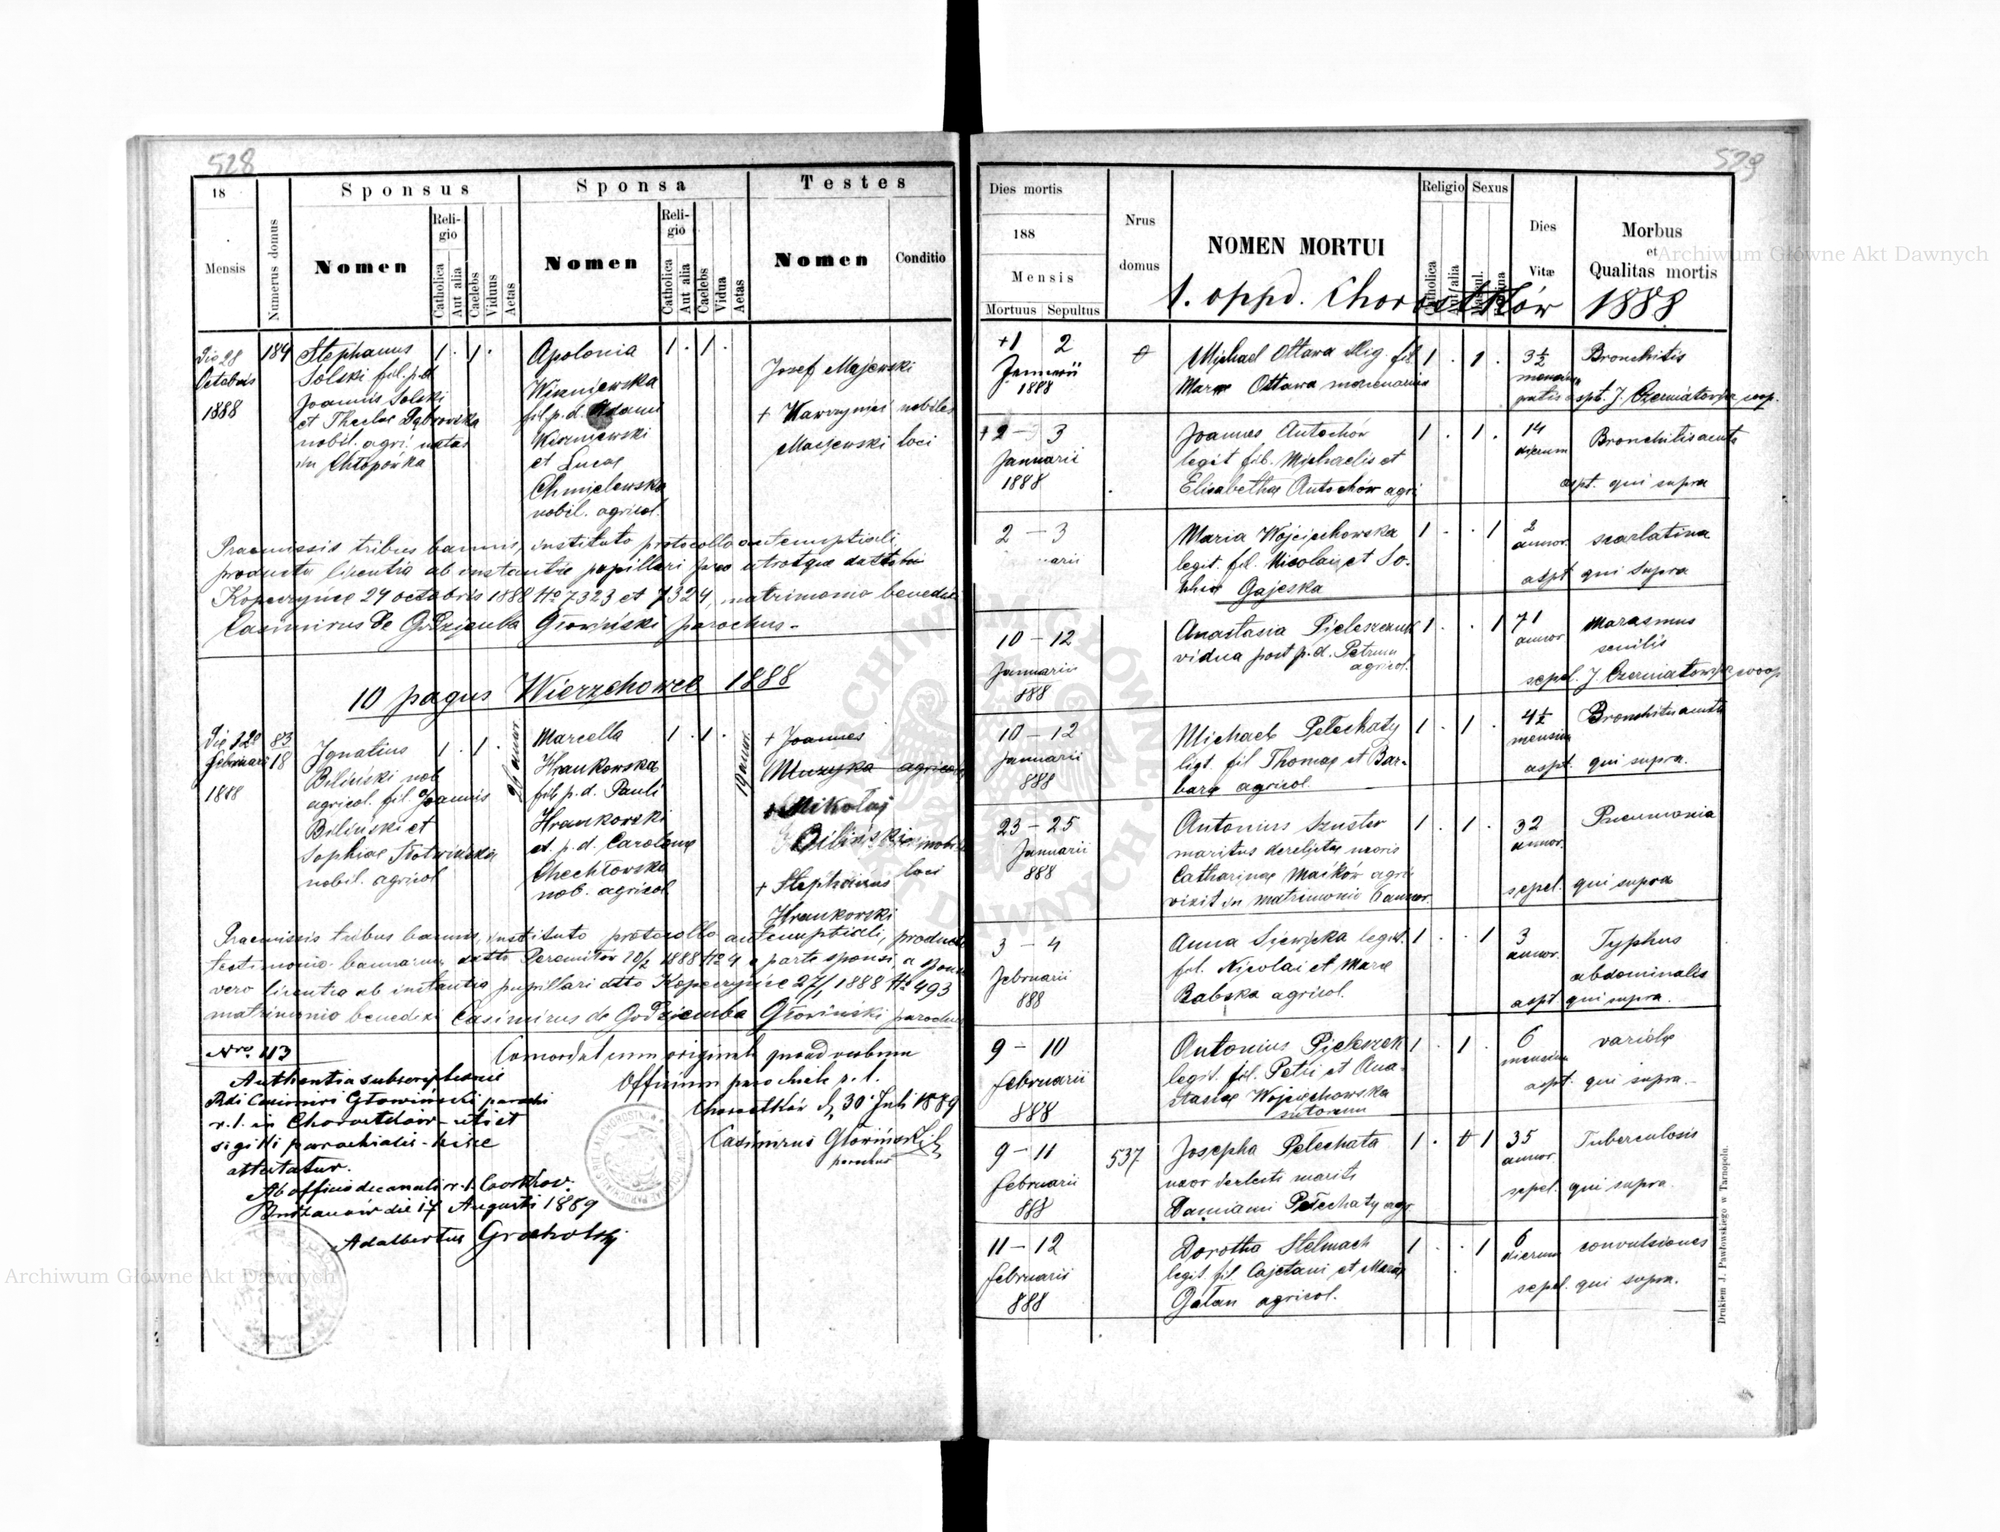 528
18
Mensis
Numerus domus
Sponsus
Nomen
Religio
Catholica
Aut alia
Caelebs
Viduus
Aetas
Sponsa
Nomen
Religio
Catholica
Aut alia
Caelebs
Vidua
Aetas
Testes
Nomen
Conditio
Die 28
Octobris
1888
184
Stephanus
Solski fil. p.d.
Joannis Solski
et Theclae Dąbrowska
nobil. agri. natus
in Chłopówka
1 . 1 .
Apolonia
Wiszniewska
fil p.d. Adami
Wiszniewski
et Lucae
Chmielewska
nobil. agricol.
1 . 1 .
Josef Majewski
+ Wawrzyniec nobiles
Majewski loci
Praemissis tribus bannis, instituto protocollo
producta licentia ab instantia pupillari pro utroque
Kopeczyńce 29 octobris 1888 No 7323 et 7324, matrimonio benedixi
Casimirus de Godziemba Głowiński parochus.
10 pagus Wierzchowce 1888
Die 28
februarii
1888
83
18
Ignatius
Biliński nob
agricol. fil. Joannis
Biliński et
Sophiae
nobil. agricol
1 . 1 .
Marcella
Hrankowska
fil p.d. Pauli
Hrankowski
et p.d. Carolinae
Chechłowska
nob. agricol
1 . 1 .
19 annor.
+ Joannes
Muzyka agricola
+ Mikołaj
Biliński nobil
+ Stephanus loci
Hrankowski
Praemissis tribus bannis, instituto protocollo producto
testimonio bannorum dtto 20/2 1888 No 4 a parte sponsi, a sponsa
vero licentia ab instantia pupillari dtto Kopeczyńce 27/1 1888 No 493
matrimonio benedixi Casimirus de Godziemba Głowiński parochus
Nro 113
Concordat cum originali quoad verbum
Officium parochiale r. l.
Chorostków d. 30 Juli 1889
Casimirus Głowiński
parochus
subscriptionis
Rdi Casimiri Głowiński parochi
r. l. in Chorostków uti et
sigilli parochialis hisce
attestatur.
Ab officio decanali r. l.
die 17 Augusti 1889
Adalbertus Grocholski
529
Dies mortis
188
Mensis
Mortuus Sepultus
Nrus
domus
NOMEN MORTUI
Religio
Catholica
Aut alia
Sexus
Dies
Vitæ
Morbus
et
Qualitas mortis
1. oppd. Chorostków 1888
+1 2
Januarii
1888
Michael Ottawa illig. fil.
Mariae Ottawa mercenaria
1 . 1 .
3½
Bronchitis
+2 - 3
Januarii
1888
Joannes Antochów
legit fil. Michaelis et
Elisabetha Antochów agri
1 . 1 .
14
dierum
Bronchitis acuta
aspt. qui supra
2 - 3
Maria Wojciechowska
legit. fil. Nicolai et So-
phia Gajeska
1 . . 1
2
annor.
scarlatina
aspt qui supra
10 - 12
Januarii
888
Anastasia Pieleszczuk
vidua post p.d. Petrum
agricol.
1 . . 1
71
annor
Marasmus
senilis
sepel. J. Czerniatowicz coop
10 - 12
Januarii
888
Michael Pełechaty
legt. fil Thomae et Bar-
bara agricol.
1 . 1 .
4½
mensium
Bronchitis acuta
aspt. qui supra.
23 - 25
Januarii
888
Antonius Szuster
maritus derelictae uxoris
Catharinae Maików agri
vixit in matrimonio 6 annor.
1 . 1 .
32
annor.
Pneumonia
sepel. qui supra
3 - 4
Februarii
888
Anna Siewicka legit.
fil. Nicolai et Maria
Babska agricol.
1 . . 1
3
annor.
Typhus
abdominalis
aspt qui supra.
9 - 10
februarii
888
Antonius Pieleszek
legit. fil. Petri et Ana-
stasiae Wojciechowska
sutorum
1 . 1 .
6
mensium
variolae
aspt. qui supra.
9 - 11
februarii
888
537
Josepha Pełechata
uxor derelicti mariti
Damiani Pełechaty agr.
1 . 1
35
annor.
Tuberculosis
sepel. qui supra.
11 - 12
februarii
888
Dorotha Stelmach
legit. fil. Cajetani et Maria
Gatan agricol.
1 . . 1
6
dierum
convulsiones
sepel. qui supra.
Drukiem J. Pawłowskiego w Tarnopolu.
Archiwum Główne Akt Dawnych
Archiwum Główne Akt Dawnych
ARCHIWUM GŁÓWNE AKT DAWNYCH